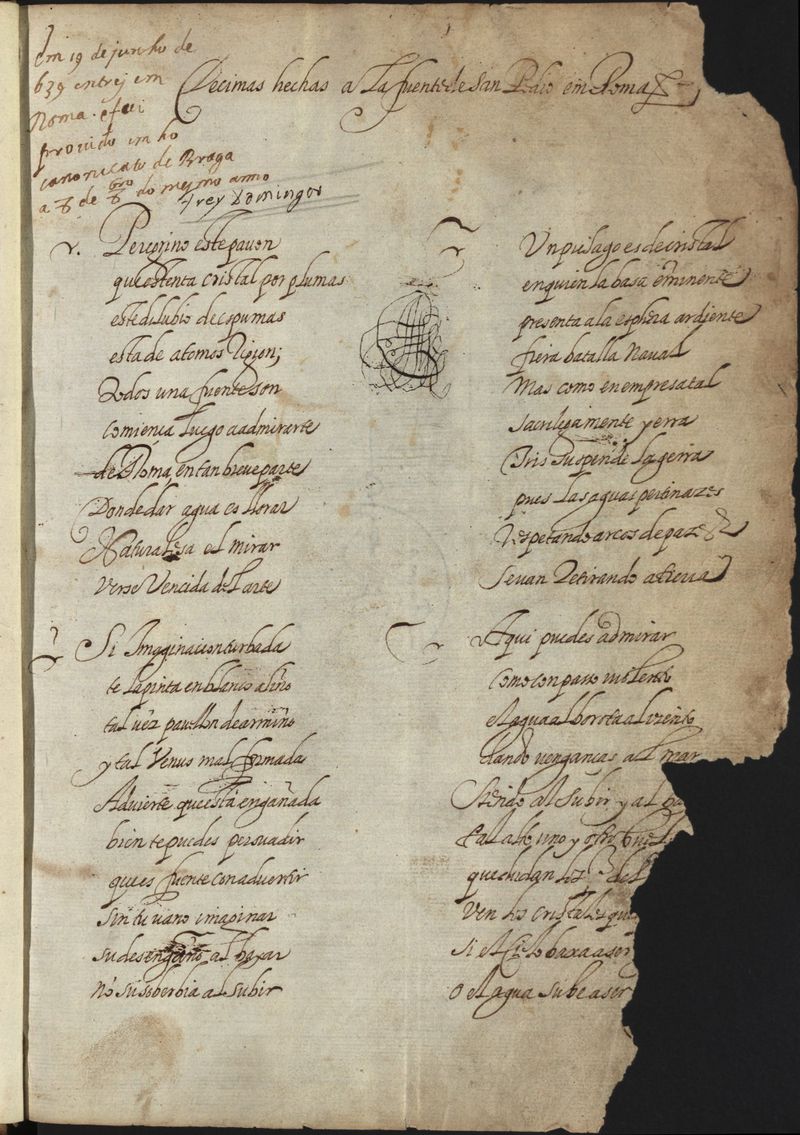 em 19 de junho de
639 entrej em
Roma. e fui
provido em ho
canonicato de Braga
a 8 de 8bro do mesmo anno
frey Domingos
Decimas hechas a la fuente de San Pedro em Roma
Peregrino este pavon
que ostenta cristal por plumas
este dilubio de espumas
esta de atomos Region;
Todos una fuente son
comiença luego a admirarte
de Roma en tan breve parte
Donde dar agua es llorar
Naturalesa el mirar
verse Vencida del arte
Si Imaginacion turbada
te la pinta en blanco aliño
tal vez pavellon de armiño
y tal Venus mal formada
Advierte que esta engañada
bien te puedes persuadir
que es fuente con advertir
sin tu vano imaginar
su desengaño al baxar
no su soberbia al subir
Un pielago es de cristal
en quien la basa eminente
presenta a la esphera ardiente
fiera batalla Naval
Mas como en empresa tal
sacrilegamente yerra
Iris suspende la gerra
pues las aguas pertinazes
Respetando arcos de pazes
se van Retirando a tierra
Aqui puedes admirar
como con passo violento
el agua alborota al viento
dando venganças al mar
Siendo al subir y al ba
tal alto uno y otro buel
que dudan los de
ven los cristales que
si el Cielo baxa a ser
O el agua sube a ser